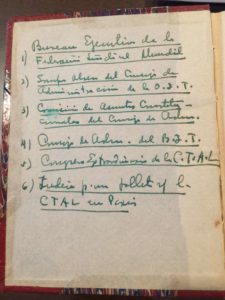 1) Bureau Ejecutivo de la
Federación Sindical Mundial
2) Grupo Obrero del Consejo de
Administración de la O.I.T.
3) Comisión de Asuntos Constitu-
cionales del Consejo de Adm.
4) Consejo de Adm. del B.I.T.
5) Congreso Extraordinario de la C.T.A.L
6) para folleto y la
CTAL en París